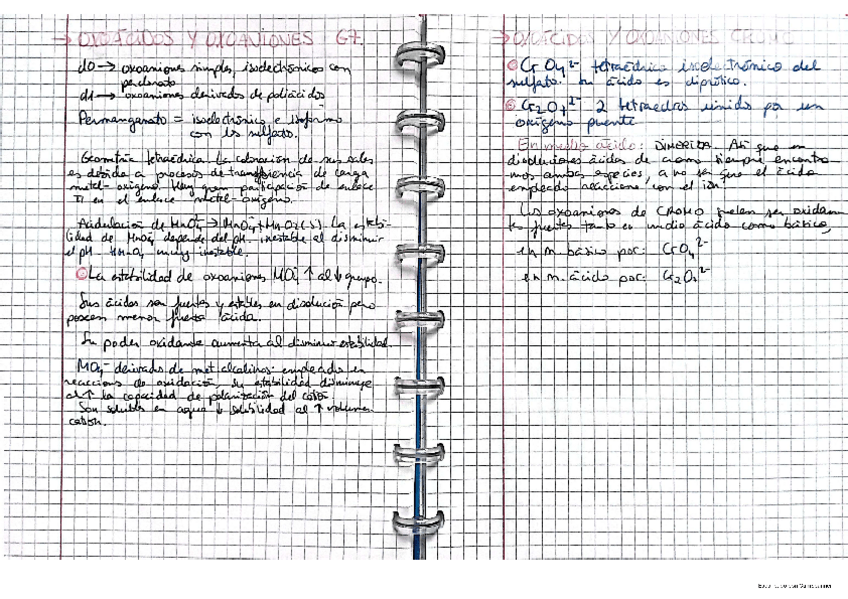 → OXOÁCIDOS Y OXOANIONES G7.
d0 → oxoaniones simples, isoelectrónicos con
perclorato
d1 → oxoaniones derivados de poliácidos
Permanganato = isoelectrónico e isoformo
con los sulfatos.
Geometría tetraédrica. La coloración de sus sales
es debida a procesos de transferencia de carga
metal-oxígeno. Hay gran participación de enlace
π en el enlace metal-oxígeno.
Acidulación de MnO4- → MnO3+ + MnO2(s). La estabi-
lidad de MnO4 depende del pH. inestable al disminuir
el pH. HMnO4 muy inestable.
La estabilidad de oxoaniones MO4- ↑ al ↓ grupo.
Sus ácidos son fuertes y estables en disolución pero
poseen menor fuerza ácida.
Su poder oxidante aumenta al disminuir estabilidad.
MO4- derivados de met alcalinos: empleados en
reacciones de oxidación, su estabilidad disminuye
al ↑ la capacidad de polarización del catión.
Son solubles en agua ↓ solubilidad al ↑ volumen
catión.
→ OXOÁCIDOS Y OXOANIONES CROMO
CrO4 2- tetraédrico isoelectrónico del
sulfato. Su ácido es diprótico.
Cr2O7 2- 2 tetraedros unidos por un
oxígeno puente
En medio ácido: DIMERIZA. Así que en
disoluciones ácidas de cromo siempre encontra-
mos ambas especies, a no ser que el ácido
empleado reaccione con el ion.
Los oxoaniones de CROMO suelen ser oxidan-
tes fuertes tanto en medio ácido como básico,
en m. básico por: CrO4 2-
en m. ácido por: Cr2O7 2-